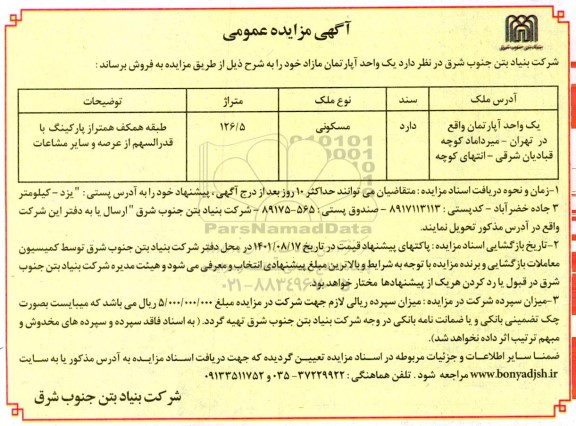 بنیاد بتن جنوب شرق
آگهی مزایده عمومی
شرکت بنیاد بتن جنوب شرق در نظر دارد یک واحد آپارتمان مازاد خود را به شرح ذیل از طریق مزایده به فروش برساند :
آدرس ملک سند نوع ملک متراژ توضیحات
یک واحد آپارتمان واقع دارد مسکونی ۱۲۶/۵ طبقه همکف همتراز پارکینگ با
در تهران - میرداماد کوچه قدرالسهم از عرصه و سایر مشاعات
قبادیان شرقی - انتهای کوچه
۱-زمان و نحوه دریافت اسناد مزایده : متقاضیان می توانند حداکثر ۱۰ روز بعد از درج آگهی ، پیشنهاد خود را به آدرس پستی : "یزد - کیلومتر
۳ جاده خضرآباد - کدپستی : ۸۹۱۷۱۱۳۱۱۳ - صندوق پستی : ۵۶۵-۸۹۱۷۵ - شرکت بنیاد بتن جنوب شرق "ارسال یا به دفتر این شرکت
واقع در آدرس مذکور تحویل نمایند.
۲-تاریخ بازگشایی اسناد مزایده : پاکتهای پیشنهاد قیمت در تاریخ ۱۴۰۱/۰۸/۱۷ در محل دفتر شرکت بنیاد بتن جنوب شرق توسط کمیسیون
معاملات بازگشایی و برنده مزایده با توجه به شرایط و بالاترین مبلغ پیشنهادی انتخاب و معرفی می شود و هیئت مدیره شرکت بنیاد بتن جنوب
شرق در قبول یا رد کردن هریک از پیشنهادها مختار خواهد بود.
۳-میزان سپرده شرکت در مزایده : میزان سپرده ریالی لازم جهت شرکت در مزایده مبلغ ۵/۰۰۰/۰۰۰/۰۰۰ ریال می باشد که میبایست بصورت
چک تضمینی بانکی و یا ضمانت نامه بانکی در وجه شرکت بنیاد بتن جنوب شرق تهیه گردد. ( به اسناد فاقد سپرده و سپرده های مخدوش و
مبهم ترتیب اثر داده نخواهد شد).
ضمنا سایر اطلاعات و جزئیات مربوطه در اسناد مزایده تعیین گردیده که جهت دریافت اسناد مزایده به آدرس مذکور یا به سایت
www.bonyadjsh.ir مراجعه شود . تلفن هماهنگی : ۳۷۲۲۹۹۲۲-۰۳۵ و ۰۹۱۳۳۵۱۱۷۵۲
شرکت بنیاد بتن جنوب شرق
ParsNamadData
۰۲۱-۸۸۳۴۹۶